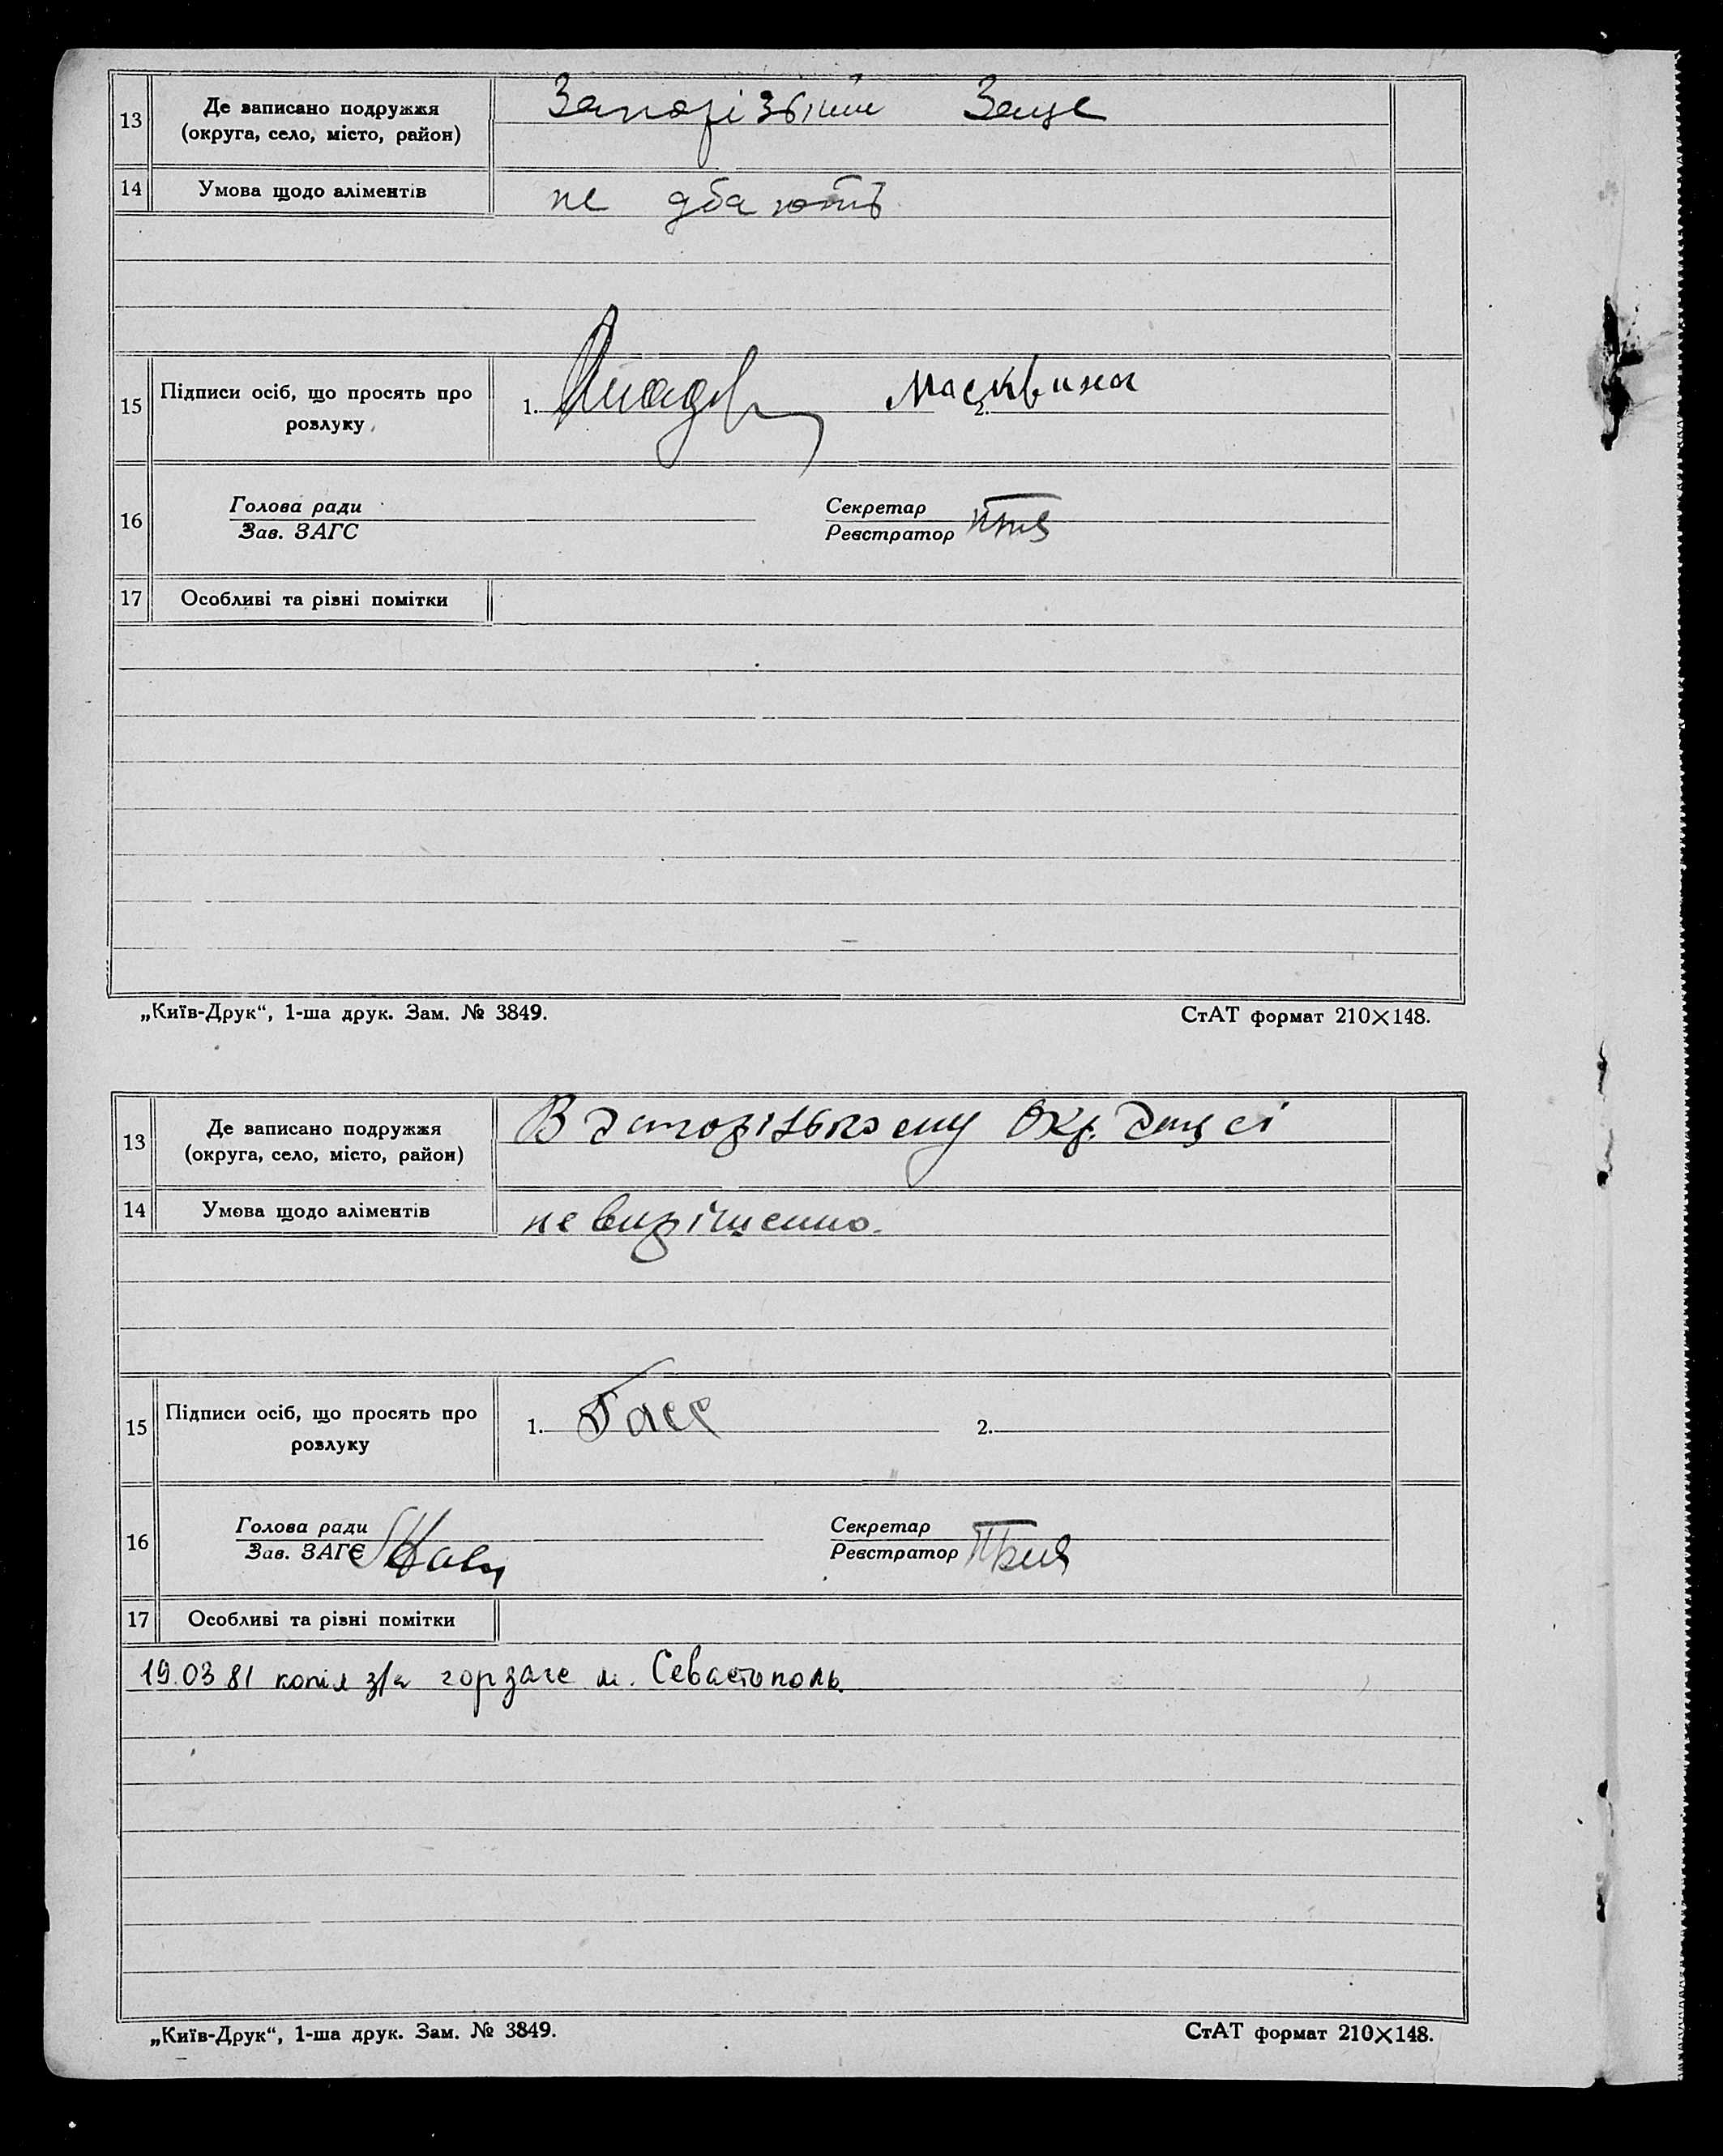 13 Де записано подружжя
(округа, село, місто, район)
14 Умова щодо аліментів
не дбають
15 Підписи осіб, що просять про
розлуку
1. 2.
Масквина
16 Голова ради
Зав. ЗАГС
Секретар
Реєстратор
17 Особливі та різні помітки
„Київ-Друк“, 1-ша друк. Зам. № 3849. СтАТ формат 210×148.
13 Де записано подружжя
(округа, село, місто, район)
В Запорізькому Окр. Загсі
14 Умова щодо аліментів
не вирішенно.
15 Підписи осіб, що просять про
розлуку
1. Гасс 2.
16 Голова ради
Зав. ЗАГС
Секретар
Реєстратор
17 Особливі та різні помітки
19.03 81 копія з/а горзагс м. Севастополь.
„Київ-Друк“, 1-ша друк. Зам. № 3849. СтАТ формат 210×148.